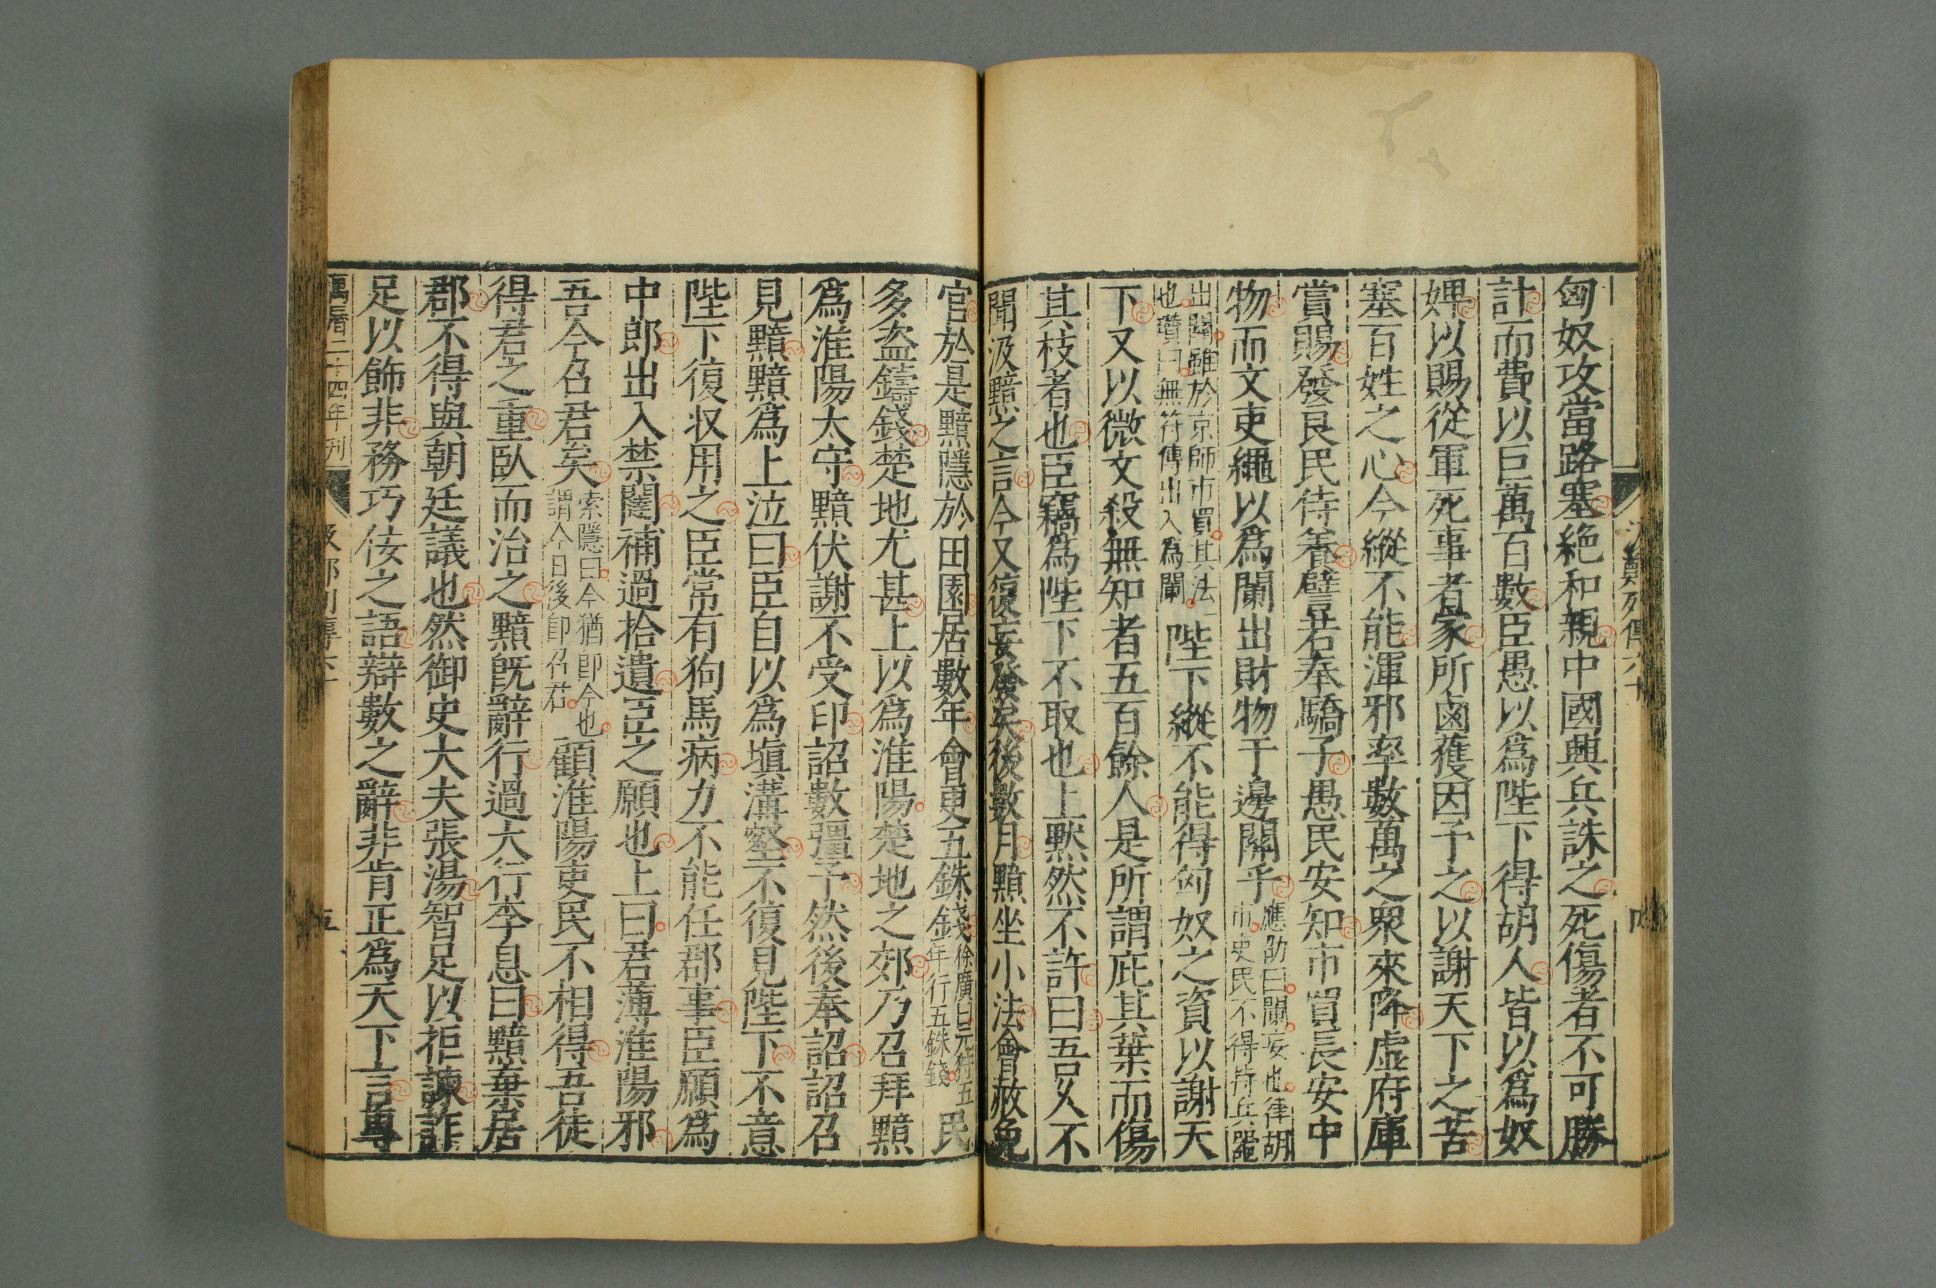 匈奴攻當路塞絶和親中國興兵誅之死傷者不可勝
計而費以巨萬百數臣愚以爲陛下得胡人皆以爲奴
婢以賜從軍死事者家所鹵獲因予之以謝天下之苦
塞百姓之心今縱不能渾邪率數萬之衆來降虛府庫
賞賜發良民侍養譬若奉驕子愚民安知市買長安中
物而文吏繩以爲闌出財物于邊關乎應劭曰闌妄也律胡
市吏民不得持兵器
出關雖於京師市買其法一
也瓚曰無符傳出入爲闌陛下縱不能得匈奴之資以謝天
下又以微文殺無知者五百餘人是所謂庇其葉而傷
其枝者也臣竊爲陛下不取也上默然不許曰吾久不
聞汲黯之言今又復妄發矣後數月黯坐小法會赦免
官於是黯隱於田園居數年會更五銖錢徐廣曰元狩五
年行五銖錢民
多盗鑄錢楚地尤甚上以爲淮陽楚地之郊乃召拜黯
爲淮陽太守黯伏謝不受印詔數彊予然後奉詔詔召
見黯黯爲上泣曰臣自以爲塡溝壑不復見陛下不意
陛下復収用之臣常有狗馬病力不能任郡事臣願爲
中郎出入禁闥補過拾遺臣之願也上曰君薄淮陽邪
吾今召君矣索隱曰今猶卽今也
謂今日後卽召君顧淮陽吏民不相得吾徒
得君之重臥而治之黯旣辭行過大行李息曰黯棄居
郡不得與朝廷議也然御史大夫張湯智足以拒諫詐
足以飾非務巧佞之語辯數之辭非肯正爲天下言專
萬曆二十四年刊
汲鄭列傳六十
五